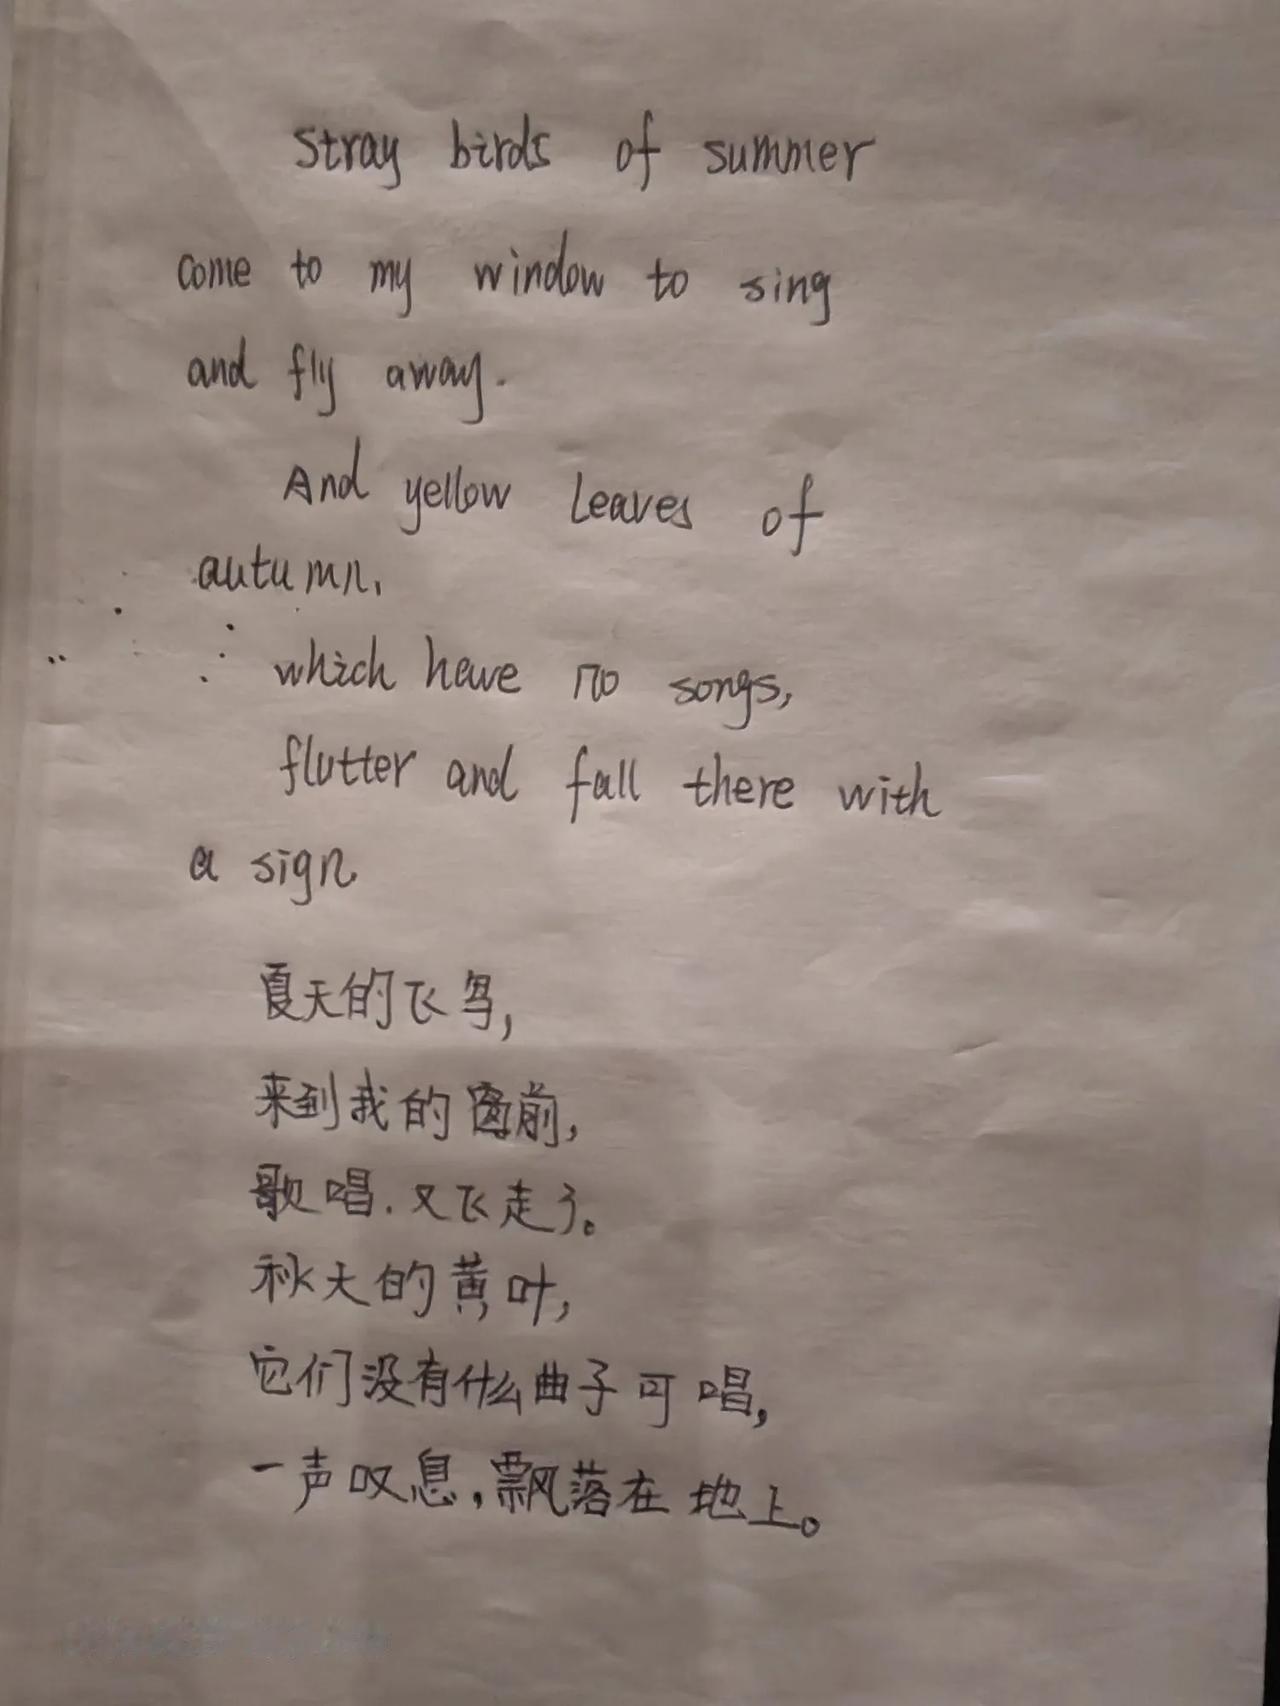 Stray birds of summer
come to my window to sing
and fly away.
And yellow leaves of
autumn,
which have no songs,
flutter and fall there with
a sign
夏天的飞鸟,
来到我的窗前,
歌唱.又飞走了。
秋天的黄叶,
它们没有什么曲子可唱,
一声叹息,飘落在地上。